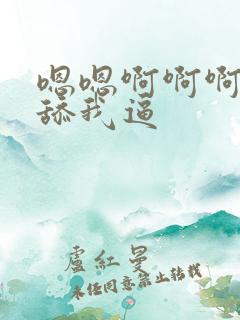 嗯嗯啊啊啊
舔我逼
盧紅曼
未经同意禁止转载